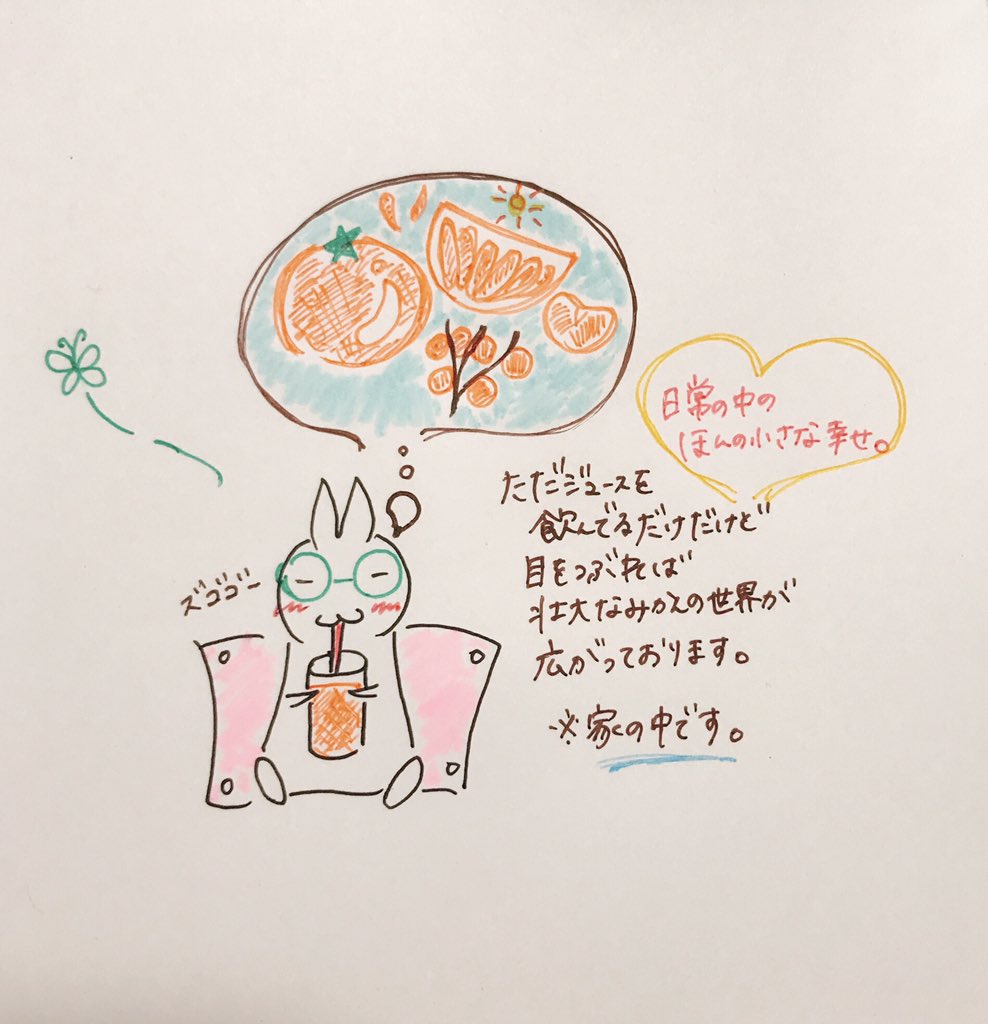 日常の中の
ほんの小さな幸せ。
ただジュースを
飲んでるだけだけど
目をつぶれば
壮大なみかんの世界が
広がっております。
※家の中です。
ズゴゴゴー